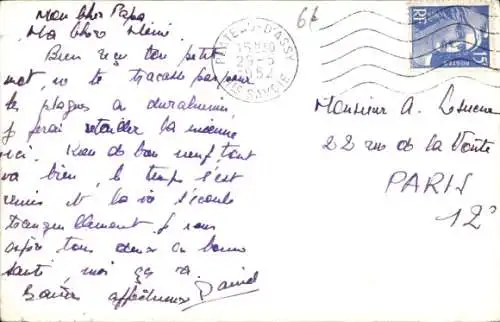 Mon cher Papa
Ma chère Mémé
Bien reçu ton petit
mot, ne te tracasse pas pour
les plaques en duralumin,
je ferai retailler la mienne
ici. Rien de bon neuf tout
va bien, le temps s'est
remis et la vie s'écoule
tranquillement je vous
espère tous deux en bonne
santé, moi ça va.
Baisers affectueux David
6f
PLATEAU-D'ASSY
15H30
29-5
1952
HTE SAVOIE
RF
15F
POSTES
Monsieur A.
22 rue de la Voûte
PARIS
12°